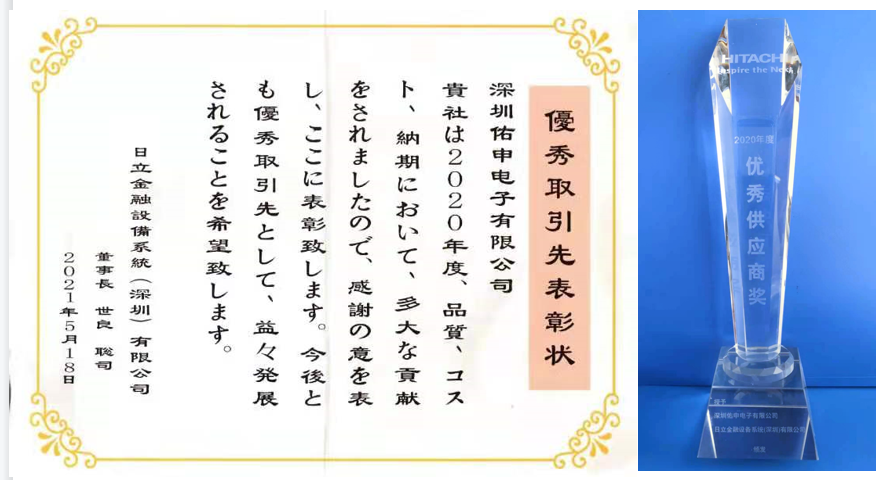 優秀取引先表彰状
深圳佑申电子有限公司
貴社は2020年度、品質、コス
ト、納期において、多大な貢献
をされましたので、感謝の意を表
し、ここに表彰致します。今後と
も優秀取引先として、益々発展
されることを希望致します。
日立金融設備系統(深圳)有限公司
董事長 世良 聡司
2021年5月18日
HITACHI
Inspire the Next
2020年度
优秀供应商奖
授予
深圳佑申电子有限公司
日立金融设备系统(深圳)有限公司
颁发